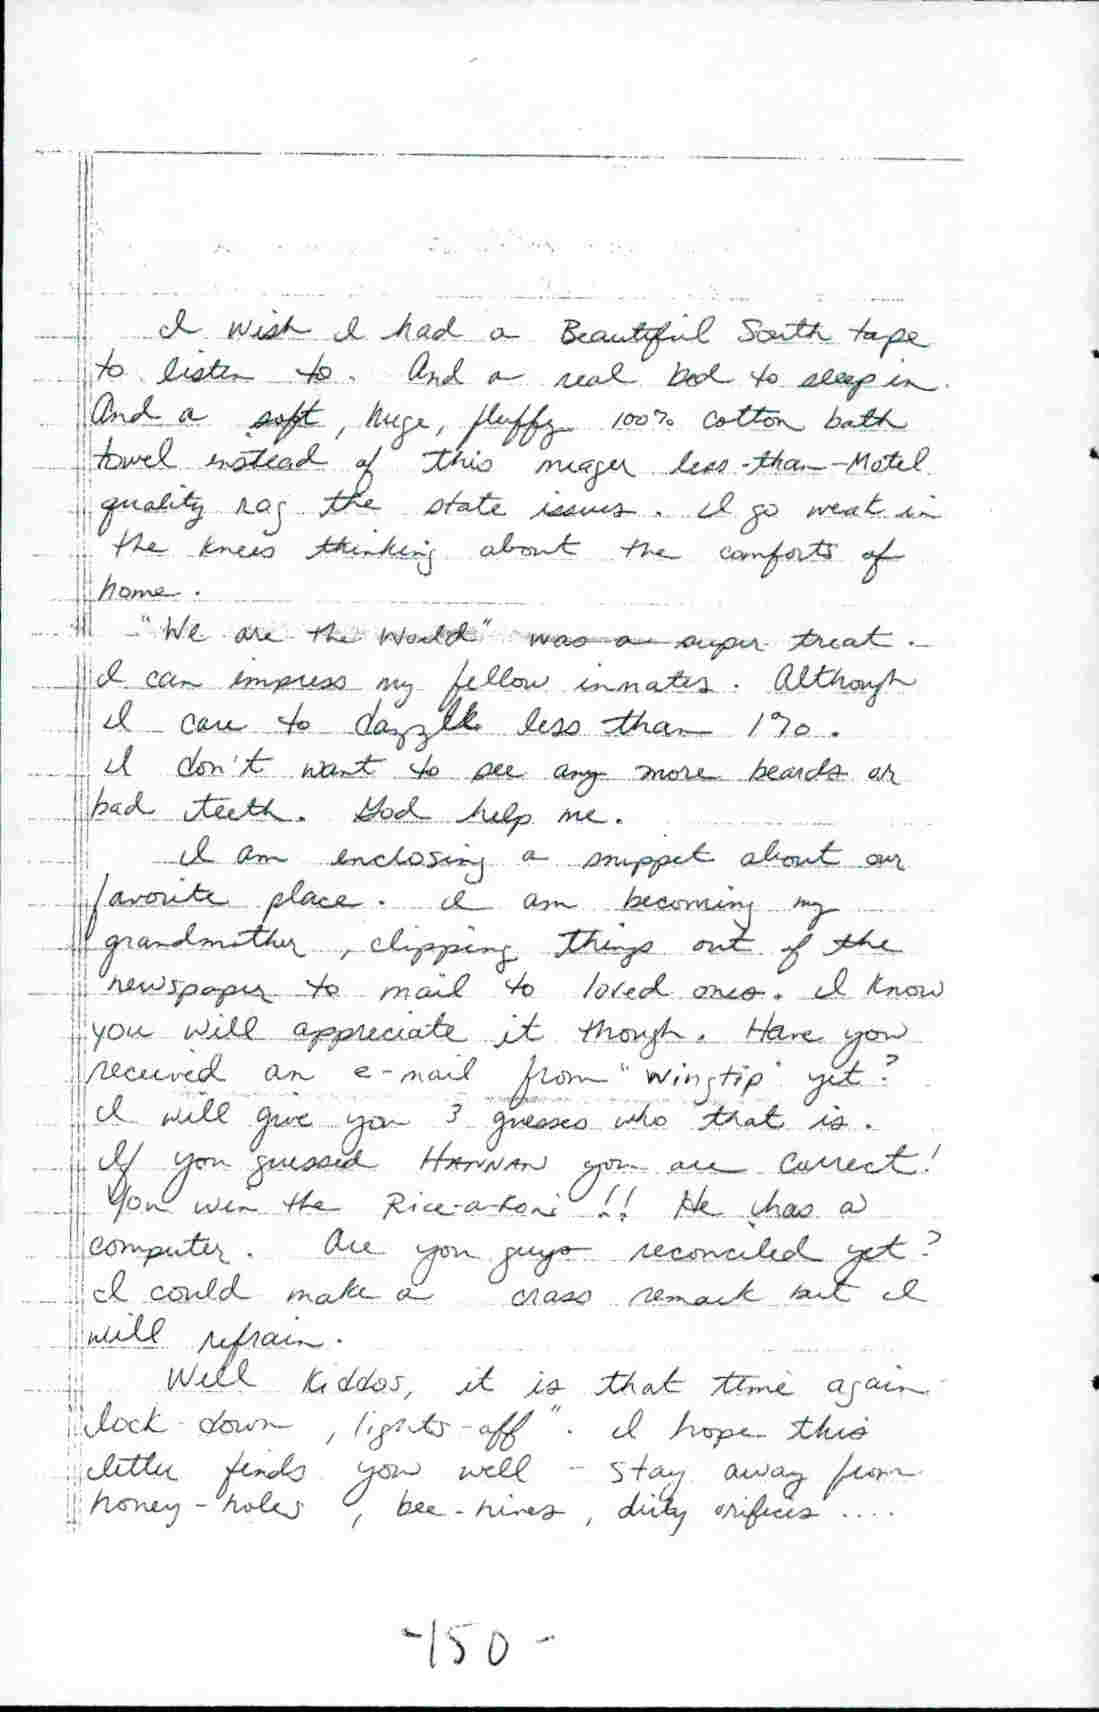 I wish I had a Beautiful South tape
to listen to. And a real bed to sleep in.
And a soft, huge, fluffy 100% cotton bath
towel instead of this meager less-than-Motel
quality rag the state issues. I go weak in
the knees thinking about the comforts of
home.
"We are the World" was a super treat.
I can impress my fellow inmates. Although
I care to dazzle less than 1%.
I don't want to see any more beards or
bad teeth. God help me.
I am enclosing a snippet about our
favorite place. I am becoming my
grandmother, clipping things out of the
newspaper to mail to loved ones. I know
you will appreciate it though. Have you
received an e-mail from "Wingtip" yet?
I will give you 3 guesses who that is.
If you guessed HANNAN you are correct!
You win the Rice-a-Roni!! He has a
computer. Are you guys reconciled yet?
I could make a crass remark but I
will refrain.
Well Kiddos, it is that time again
lock-down, lights-off". I hope this
letter finds you well - stay away from
honey-holes, bee-hives, dirty orifices ....
-150-